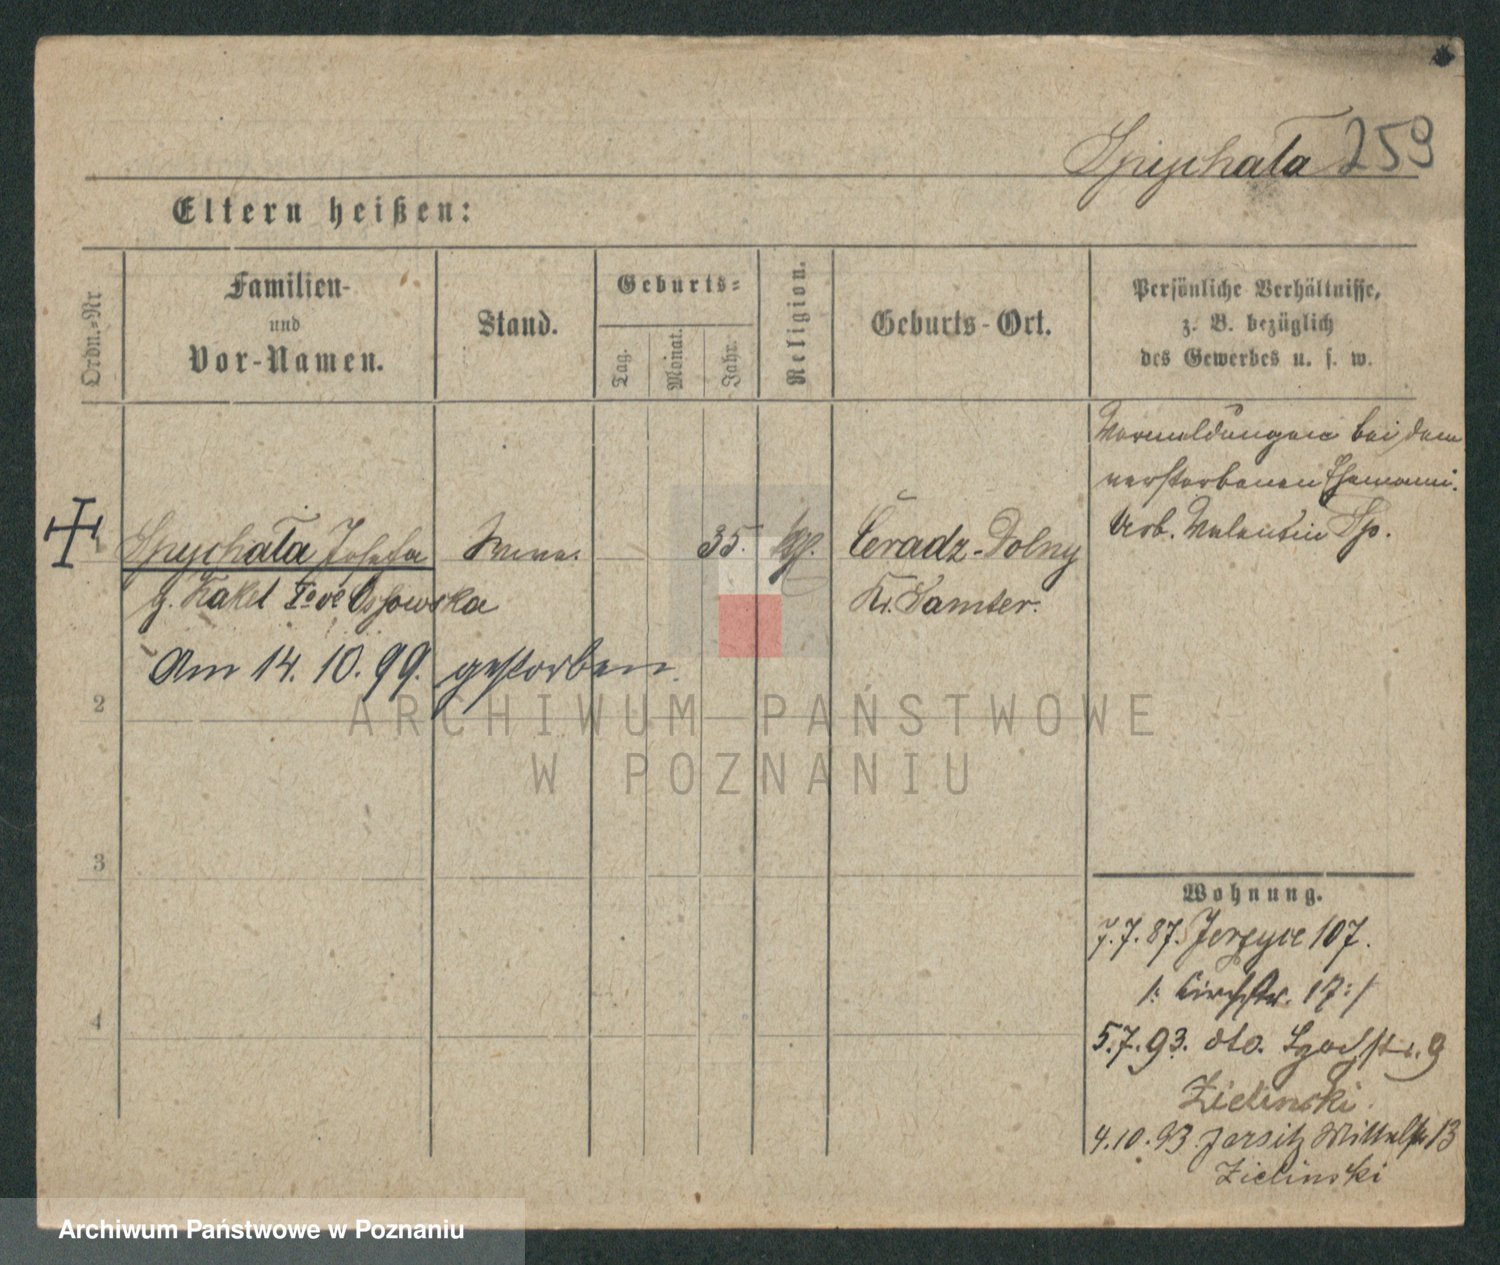 Spychała 259
Eltern heißen:
Ordn.-Nr
Familien-
und
Vor-Namen.
Stand.
Geburts-
Tag.
Monat.
Jahr.
Religion.
Geburts-Ort.
Persönliche Verhältnisse,
z. B. bezüglich
des Gewerbes u. s. w.
Vormeldungen bei dem
verstorbenen Ehemann.
Arb. Valentin Sp.
Spychała Josefa
35.
Ceradz-Dolny
g. Kakel I⁰ve Ossowska
Kr. Samter.
Am 14. 10. 99. gestorben.
2
3
4
ARCHIWUM PAŃSTWOWE
W POZNANIU
Wohnung.
7.7.87. Jerzyce 107.
/: Kirchstr. 17:/
5.7.93. dto. 9
Zielinski
4.10.93. Jersitz Mittelstr 13
Zielinski
Archiwum Państwowe w Poznaniu